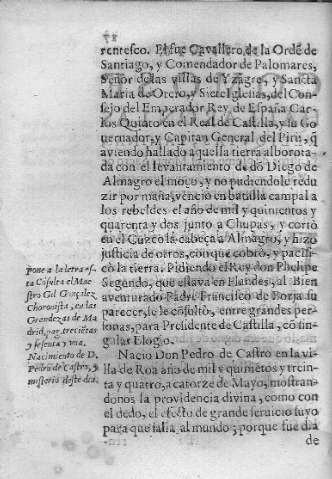 78
rentesco. El fue Cavallero de la Ordẽ de
Santiago, y Comendador de Palomares,
Señor de las villas de Yzagre, y Sancta
Maria de Otero, y Siete Iglesias, del Con-
sejo del Emperador Rey de España Car-
los Quinto en el Real de Castilla, y su Go
uernador, y Capitan General del Pirù, q̃
aviendo hallado aquella tierra alborota-
da con el levantamiento de dõ Diego de
Almagro el moço, y no pudiendole redu
zir por maña, venciò en batalla campal a
los rebeldes el año de mil y quinientos y
quarenta y dos junto a Chupas, y cortò
en el Cuzco la cabeça a Almagro, y hizo
justicia de otros, con que cobrò, y paci-
cò la tierra. Pidiendo el Rey don Phelipe
Segundo, que estava en Flandes, al Bien
aventurado Padre Francisco de Borja su
parecer, le cõsultò, entre grandes per-
sonas, para Presidente de Castilla, cõ sin-
gular Elogio.
pone a la letra es-
ta Cõsulta el Mae
stro Gil Gonçalez
Choronista, en las
Grandezas de Ma
drid, pag. trecientas
y sesenta y una.
Nacio Don Pedro de Castro en la vi-
lla de Roa año de mil y quiniẽtos y trein-
ta y quatro, a catorze de Mayo, mostran-
donos la providencia divina, como con
el dedo, el efecto de grande seruicio suyo
para que salia al mundo; porque fue dia
de
Nacimiento de D.
Pedro de Castro, y
misterio deste dia.